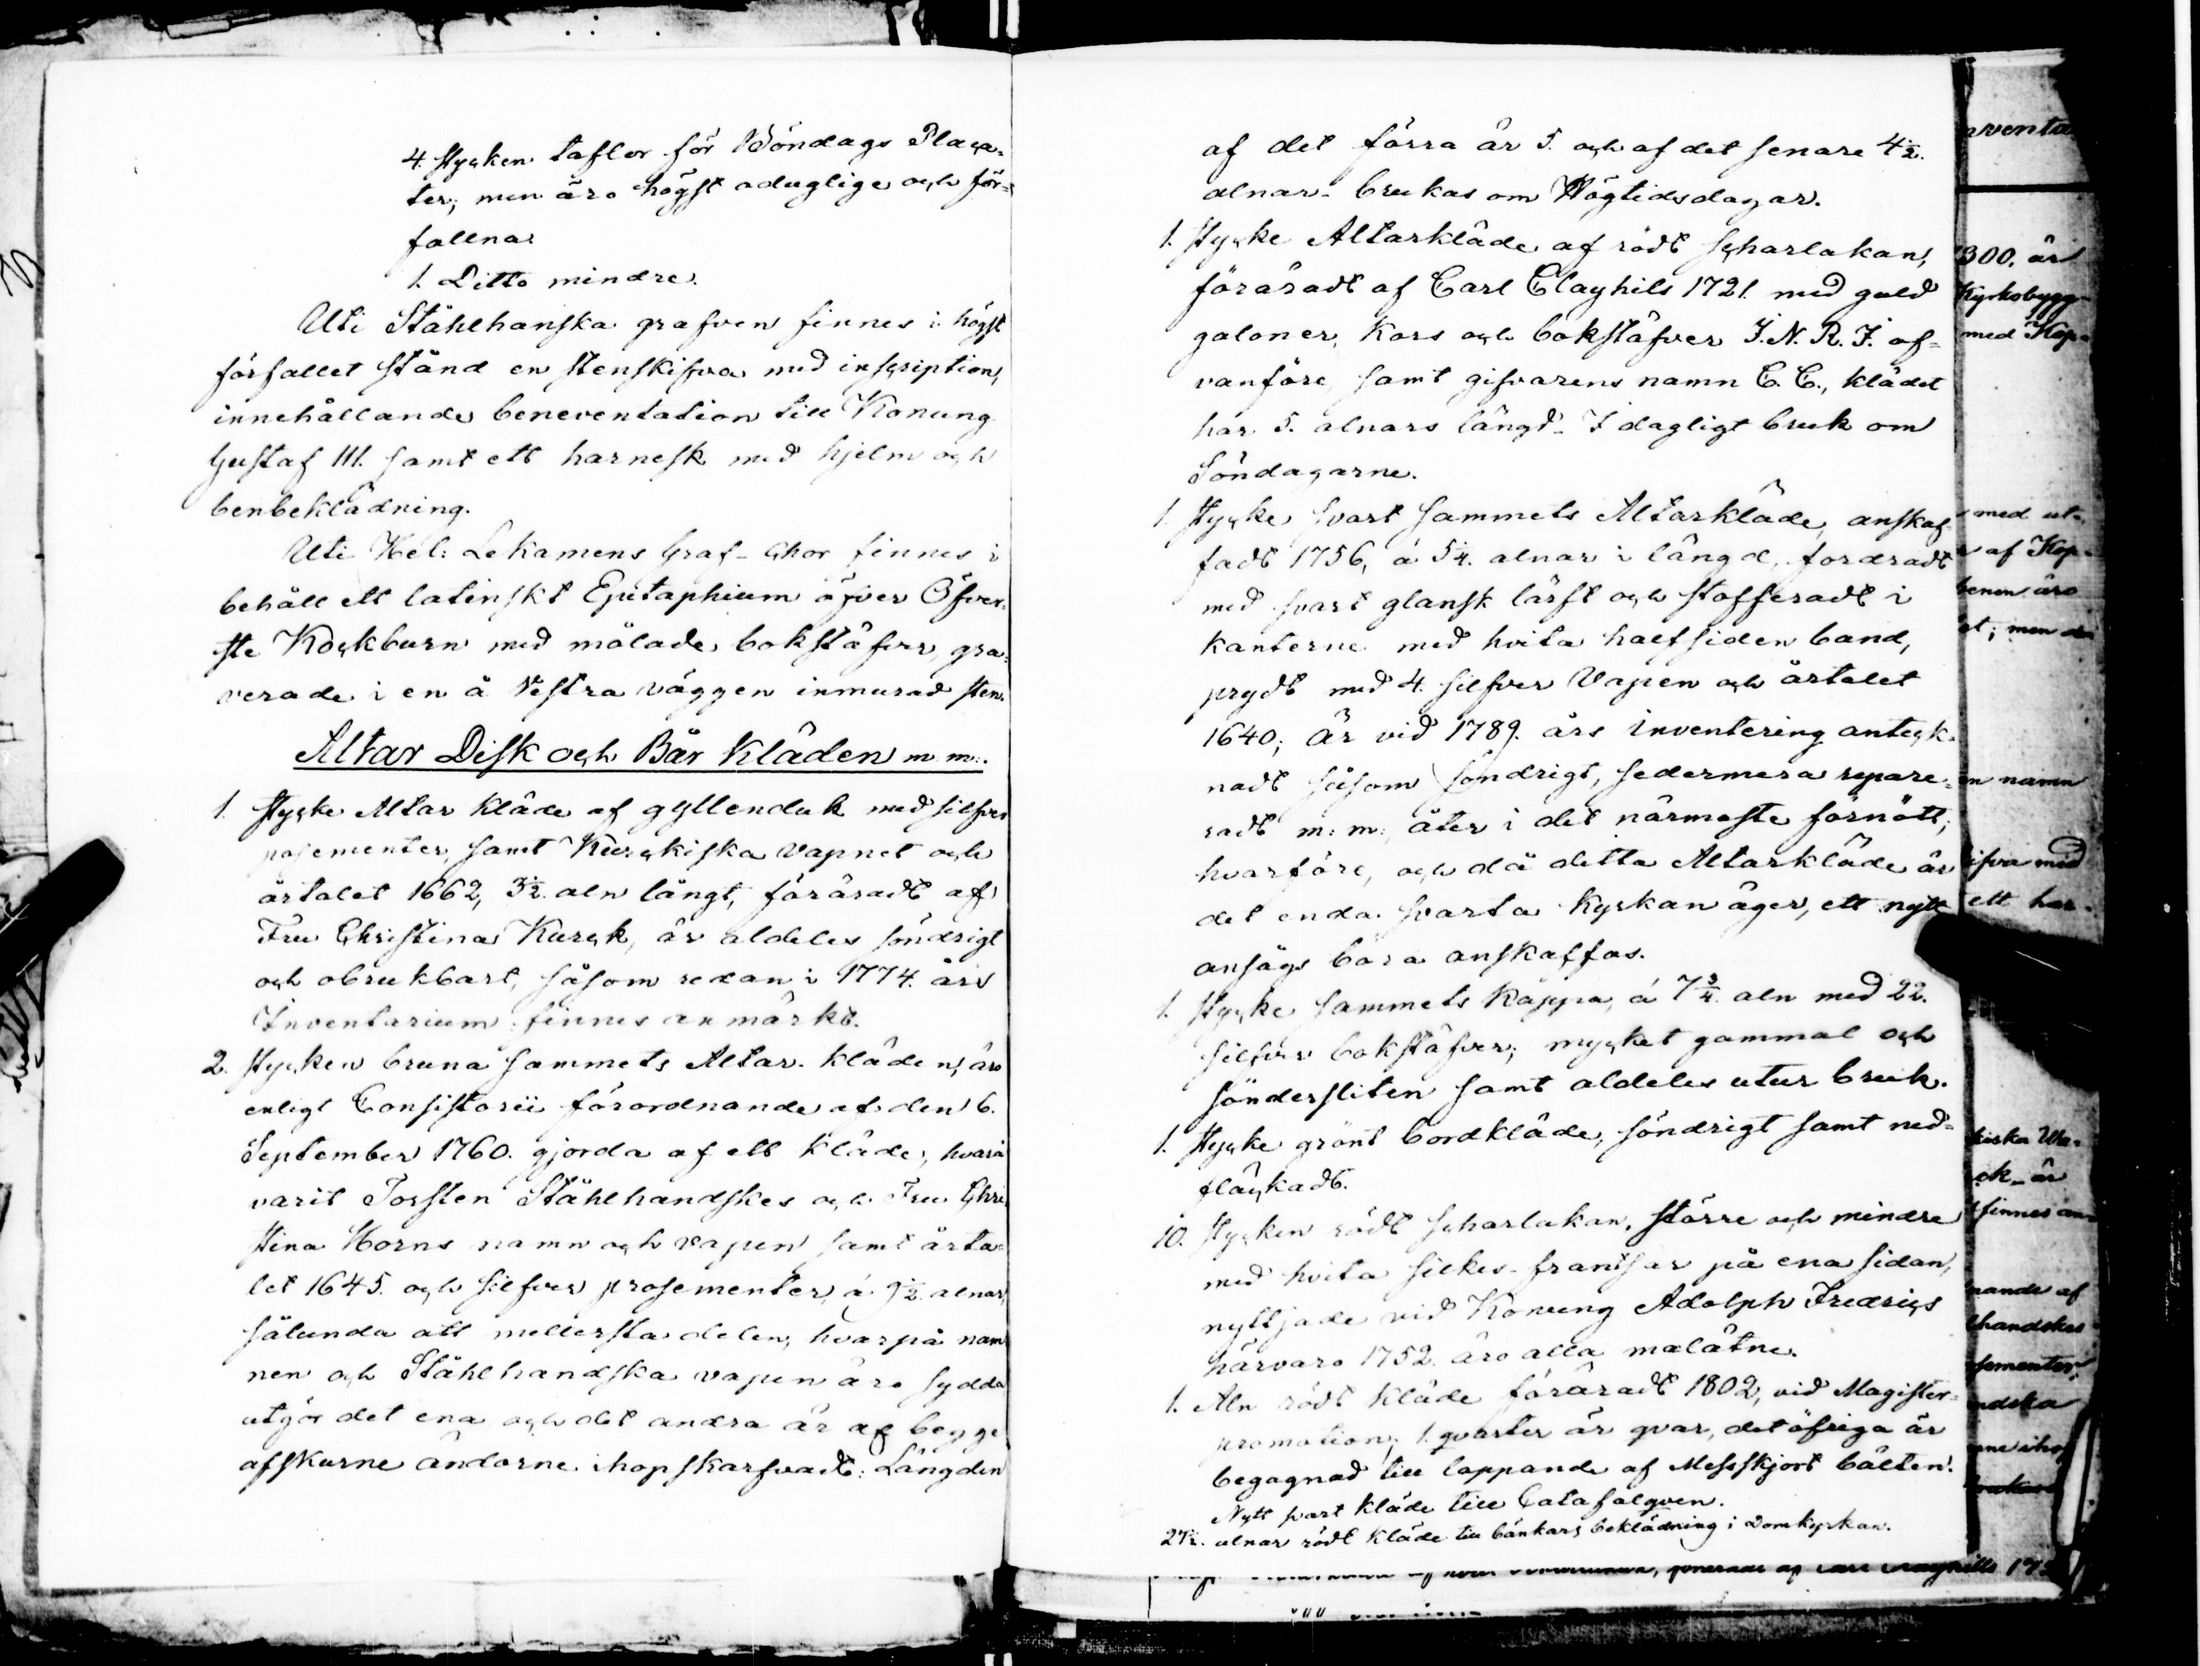 4. stycken taflor för Böndags Placa-
ter, men äro högst oduglige och för-
fallna
1. Ditto mindre.
Uti Stålhanska grafven finnes i högst
förfallet stånd en stenskifva med inscription,
innehållande beneventation till Konung
Gustaf III. samt ett harnesk med hjelm och
benbeklädning.
Uti Kel: Lekamens Graf-Chor finnes i
behåll ett latinskt Epitaphium öfver Öfver-
ste Kockburn med målade bokstäfver, gra-
verade i en å Vestra väggen inmurad sten.
Altar Disk och Bår Kläden m m:.
1. stycke Altar kläde af gyllenduk med silfver
posementer, samt Kurckiska vapnet och
årtalet 1662, 3½. aln långt, föräradt af
Fru Christina Kurck, är aldeles söndrigt
och obrukbart, såsom redan i 1774. års
Inventarium finnes anmärkt.
2. stycken bruna sammets Altar. kläden, äro
enligt Consistorii förordnande af den 6.
September 1760. gjorda af ett kläde, hvarå
varit Torsten Stålhandskes och Fru Chri
stina Horns namn och vapen samt årta-
let 1645. och silfver prosementer, á 9½ alnar,
sålunda att mellersta delen, hvarpå nam
nen och Stålhandska vapen äro sydda
utgör det ena och det andra är af begge
afskurne ändarne ihopskarfvadt: Längden
af det förra är 5. och af det senare 4½.
alnar- brukas om Högtidsdagar.
1. stycke Altarkläde af rödt scharlakan,
föräradt af Carl Clayhils 1721. med guld
galoner, Kors och bokstäfver I.N.R.I. of-
vanföre, samt gifvarens namn C. C., klädet
har 5. alnars längd- I dagligt bruk om
Söndagarne.
1. stycke svart sammets Altarkläde, anskaf-
fadt 1756, á 5¼. alnar i längd, fordradt
med svart glansk lärft och stofferadt i
kanterne med hvita halfsiden band,
prydt med 4. silfver Vapen och årtalet
1640; Är vid 1789. års inventering anteck-
nadt såsom söndrigt, sedermera repare-
radt m: m: åter i det närmaste förnött;
hvarföre, och då detta Altarkläde är
det enda svarta Kyrkan äger, ett nytt
ansågs böra anskaffas.
1. stycke sammets Kappa, á 7¾. aln med 22.
silfver bokstäfver; mycket gammal och
söndersliten samt aldeles utur bruk.
1. stycke grönt bordkläde, söndrigt samt ned-
fläckadt.
10. stycken rödt scharlakan, större och mindre
med hvita silkes-frantsar på ena sidan,
nyttjade vid Konung Adolph Fredrics
härvaro 1752. äro alla malätne.
1. Aln rödt kläde föräradt 1802, vid Magister-
promotion; 1. qvarter är qvar, det öfriga är
begagnad till lappande af Messskjort bälten.
Nytt svart kläde till Catafalqven.
27½. alnar rödt kläde till bänkars beklädning i Domkyrkan.
300. är
Kyrkobygg-
med Kop-
med ut-
af Kop-
benen äro
et; men de
en namn
ifva med
ett har-
ck- är
finnes an-
nande af
handskes
sementer,
ndska